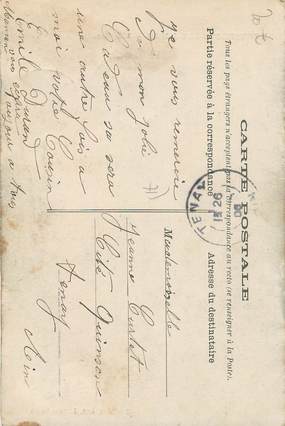 CARTE POSTALE
Tous les pays étrangers n'acceptent pas la correspondance au recto (se renseigner à la Poste).
Partie réservée à la correspondance
Adresse du destinataire
Je vous remercie
de mon joli
Cadeau sa sera
une autre fois a
moi votre Cousin
Emile Durand
toujour a tous
Mademoiselle
Jeanne
Cité Quinson
Tenay
Ain
TENAY
20 €